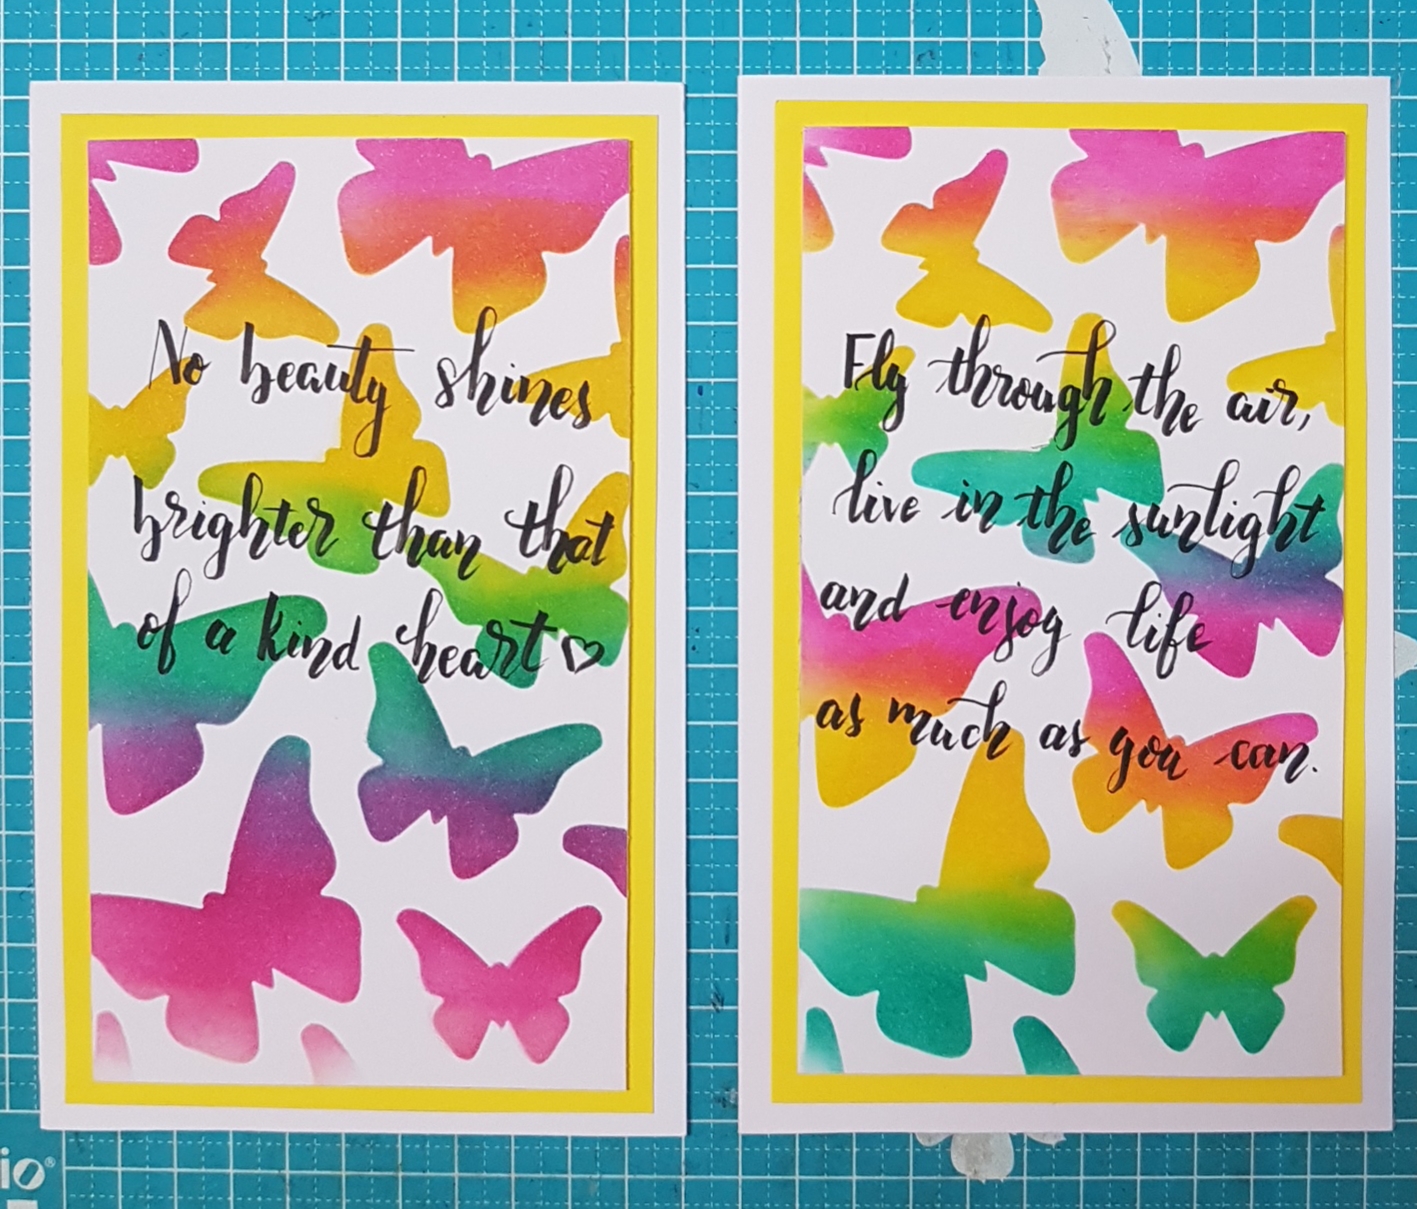 No beauty shines
brighter than that
of a kind heart♡
Fly through the air,
live in the sunlight
and enjoy life
as much as you can.
io®